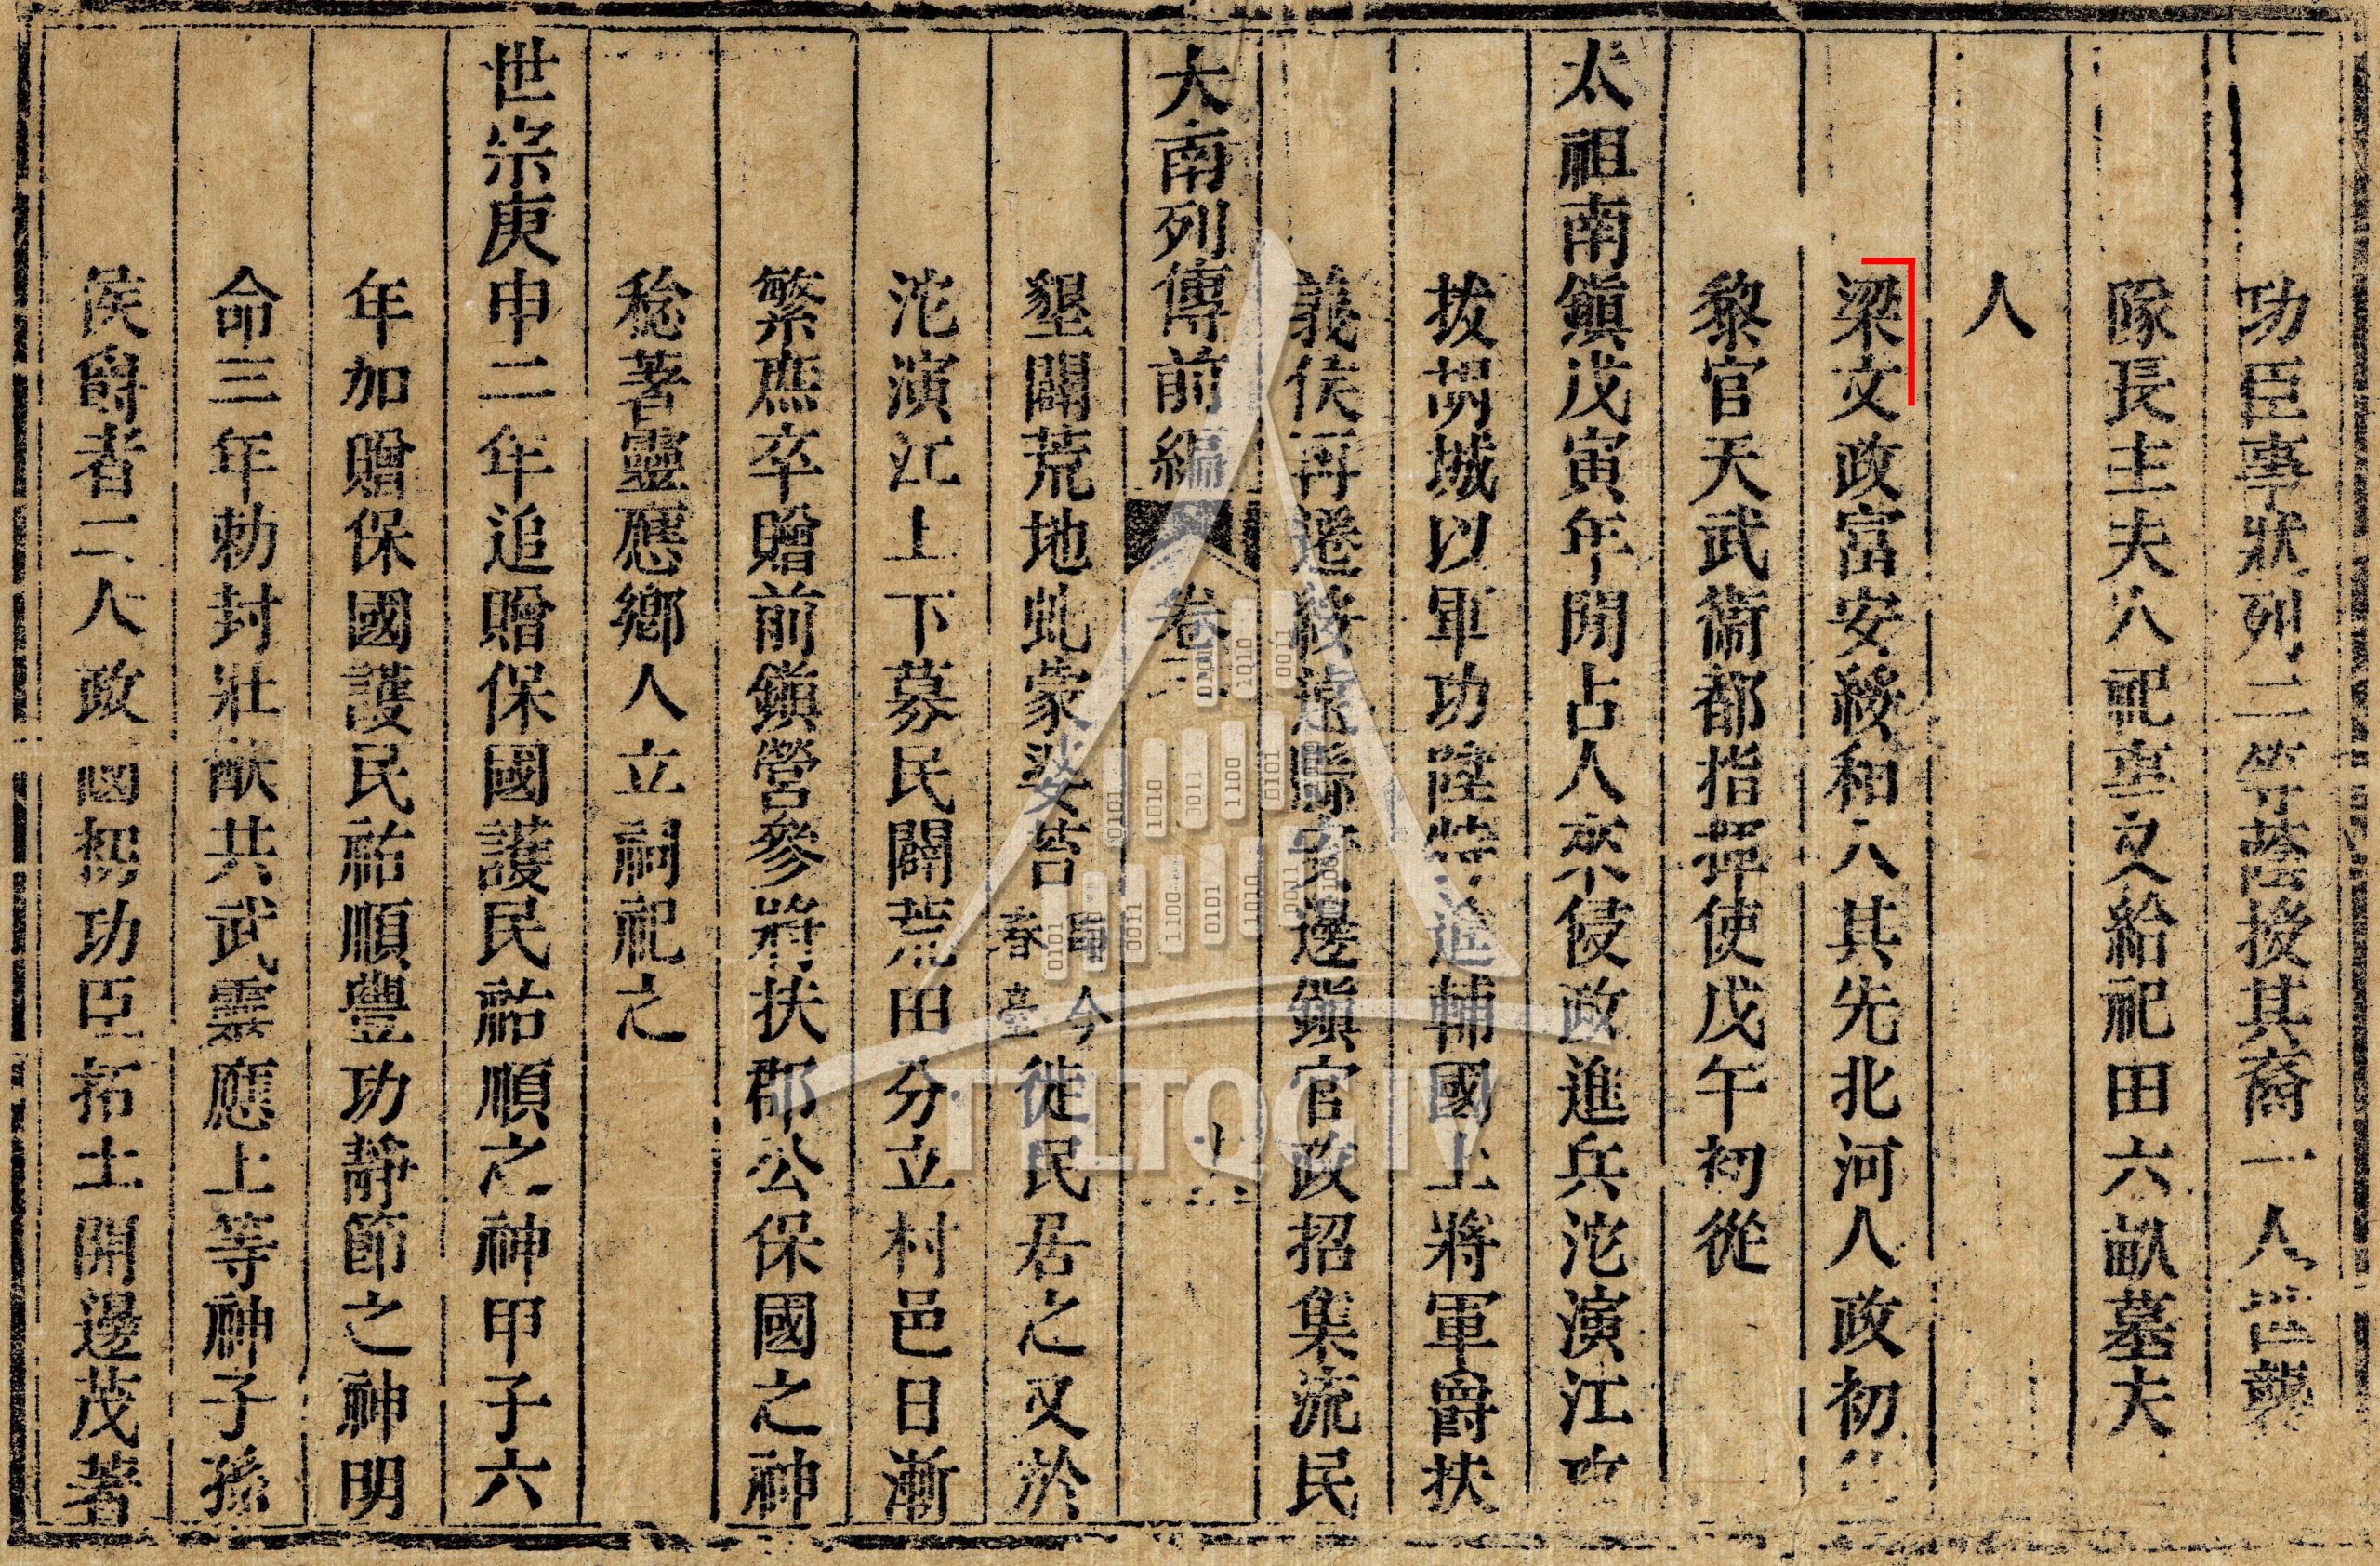 功臣事狀列二等蔭授其裔一人世襲
隊長主夫八祀事又給祀田六畝墓夫
人
梁文政富安綏和人其先北河人政初仕
黎官天武衛都指揮使戊午初從
太祖南鎮戊寅年間占人來侵政進兵沱演江攻
拔胡城以軍功陞特進輔國上將軍爵扶
義侯再遷綏遠縣安邊鎮官政招集流民
大南列傳前編 卷三
墾闢荒地虬蒙婆苔 即今春臺 徙民居之又於
沱演江上下募民闢荒田分立村邑日漸
繁庶卒贈前鎮營參將扶郡公保國之神
稔著靈應鄉人立祠祀之
世宗庚申二年追贈保國護民祐順之神甲子六
年加贈保國護民祐順豐功靜節之神明
命三年勅封壯猷共武靈應上等神子孫
侯爵者二人政國初功臣拓土開邊茂著
TTLTQG IV